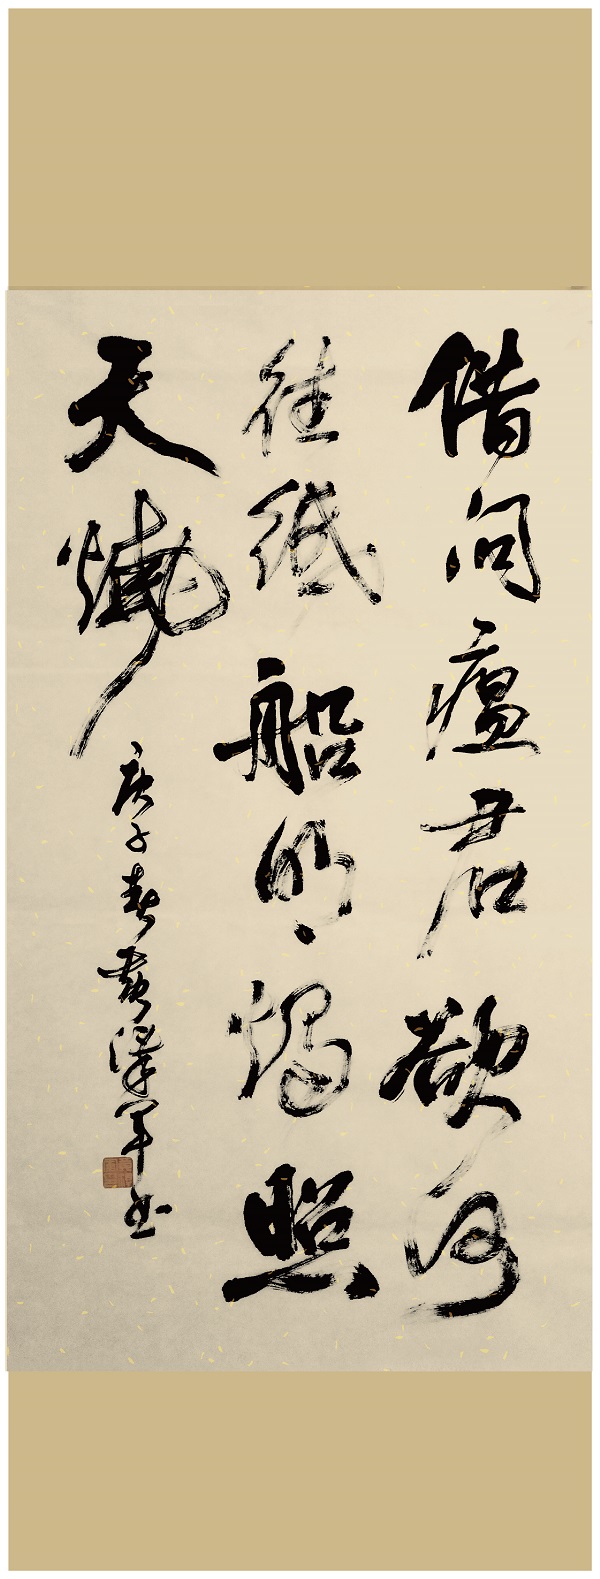 借问瘟君欲何
往纸船明烛照
天烧
庚子春黄泽军书